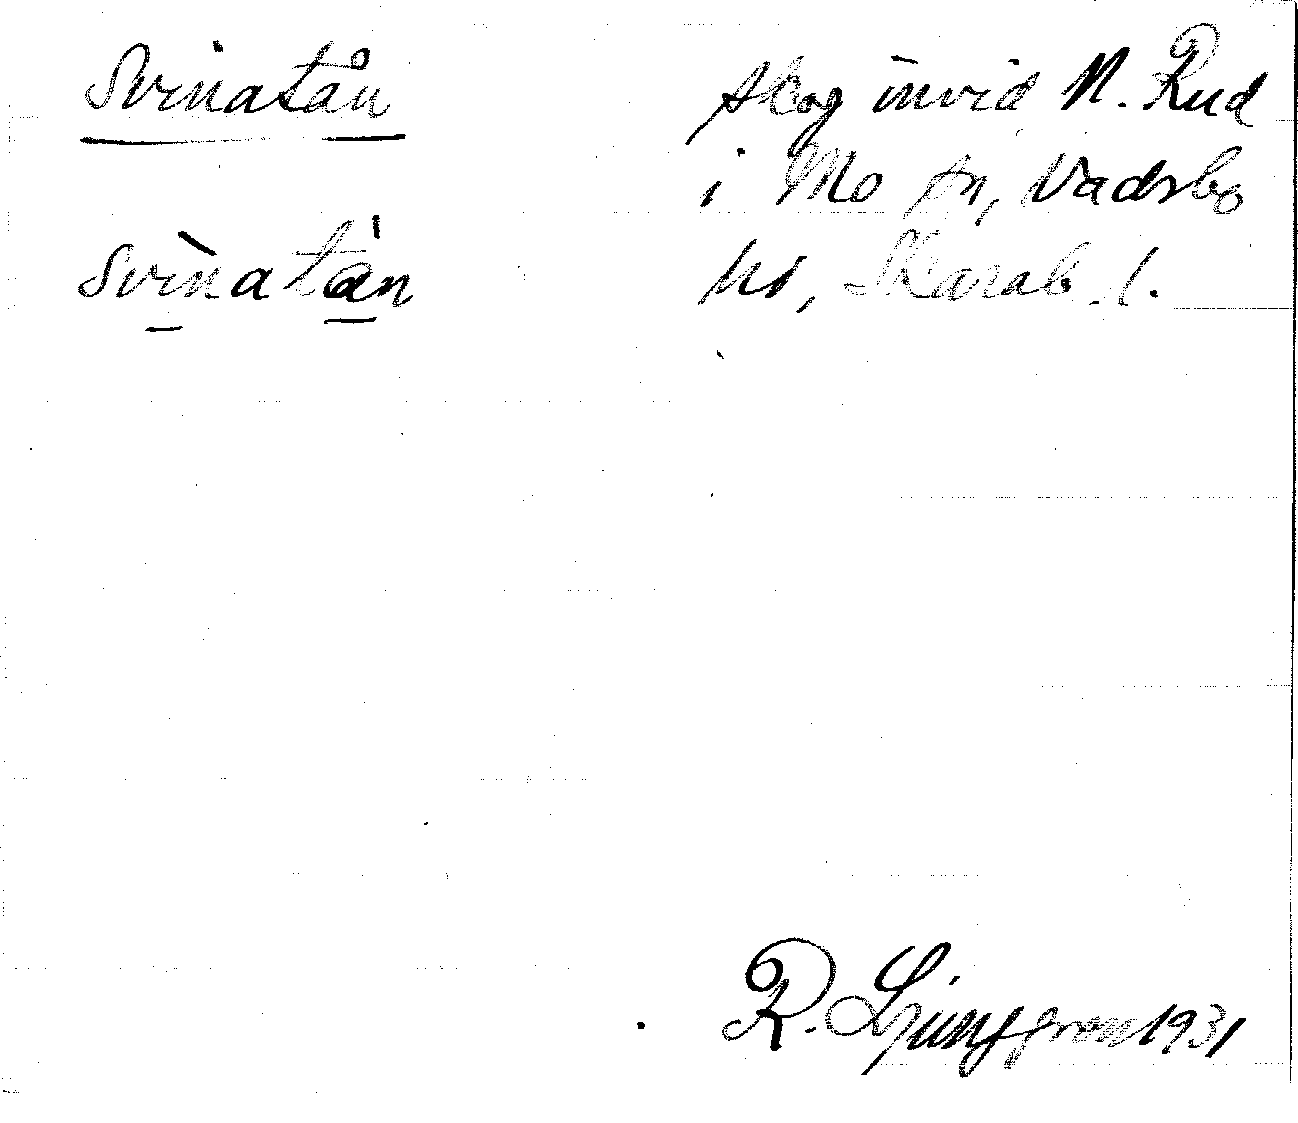 Svinatån
svìnatán
skog invid N. Rud
i Mo sn, Vadsbo
hd, Skarab. l.
R. Ljunggren 1931